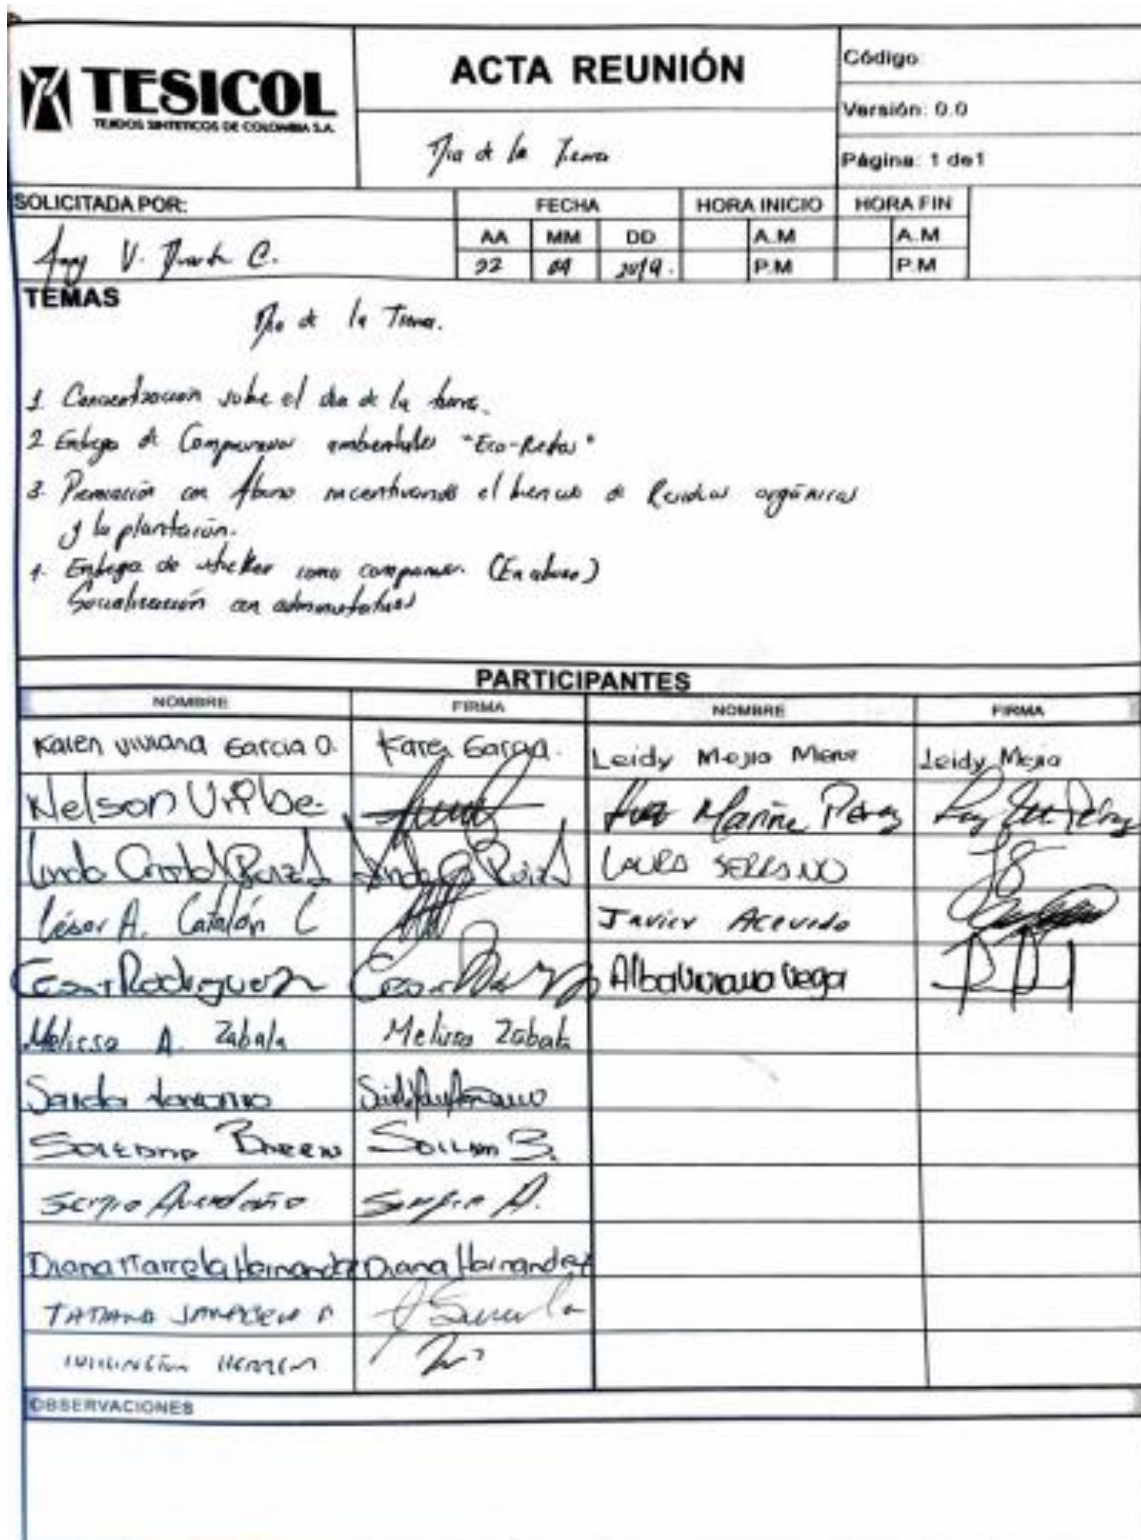 TESICOL
TEJIDOS SINTETICOS DE COLOMBIA S.A.
ACTA REUNIÓN
Dia de la Tierra
Código:
Versión: 0.0
Página: 1 de1
SOLICITADA POR:
V. Duarte C.
FECHA
HORA INICIO
HORA FIN
AA MM DD A.M A.M
22 04 2019. P.M P.M
TEMAS
Dia de la Tierra.
1. Concentización sobre el dia de la tierra.
2 Entrega de Compromisos ambientales "Eco-Retos"
3. Premiación con Abono incentivando el buen uso de Residuos orgánicos
y la plantación.
4. Entrega de sticker como compromiso.
Socialización con administrativos
PARTICIPANTES
NOMBRE FIRMA NOMBRE FIRMA
Karen Viviana Garcia O. Karen Garcia. Leidy Mejia Leidy Mejia
Nelson Uribe. Marine Perez
Linda Cristal Ruiz LAURA SERRANO
César A. Catalán C Javier Acevedo
Cesar Rodriguez Cesar Alba Viviana Vega
Melissa A. Zabala Melissa Zabala
Sandra
SOLEDAD B.
Sergio Avendaño Sergio A.
Diana Marcela Hernandez Diana Hernandez
TATIANA
HERRERA
OBSERVACIONES